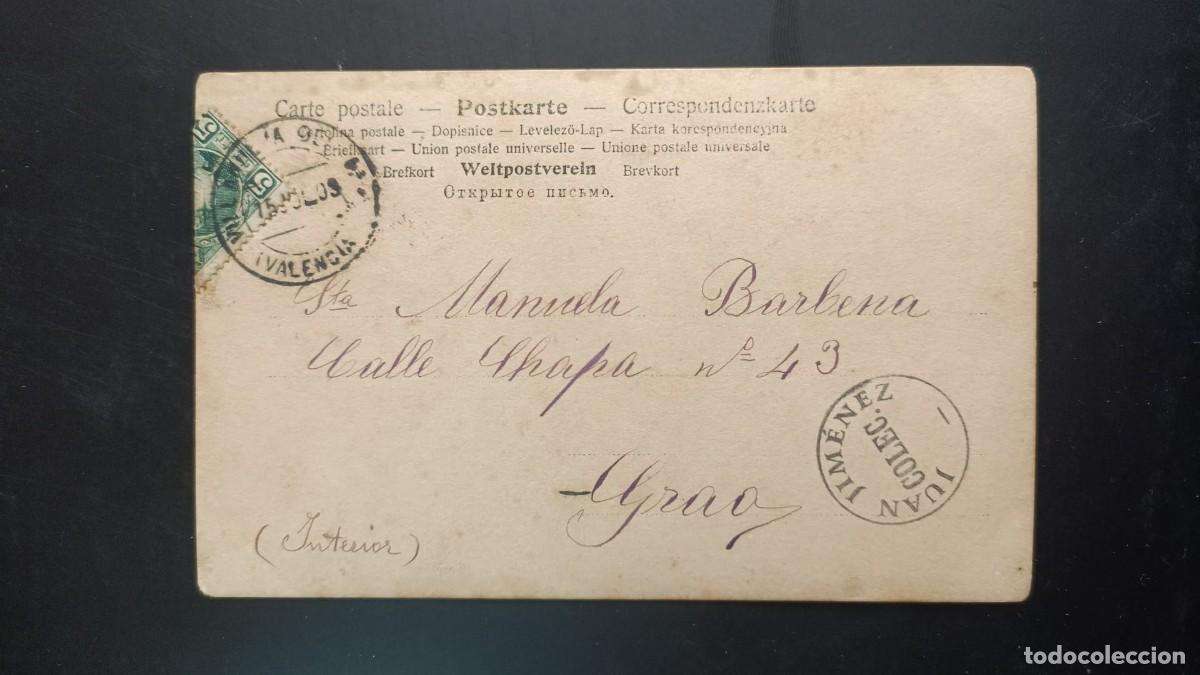 Carte postale — Postkarte — Correspondenzkarte
Cartolina postale — Dopisnice — Levelező-Lap — Karta korespondencyjna
Briefkaart — Union postale universelle — Unione postale universale
Brefkort Weltpostverein Brevkort
Открытое письмо.
5
5
(VALENCIA)
Sta Manuela Barbena
Calle Chapa nº 43
JUAN JIMÉNEZ
COLEC.
Grao
(Interior)
todocoleccion